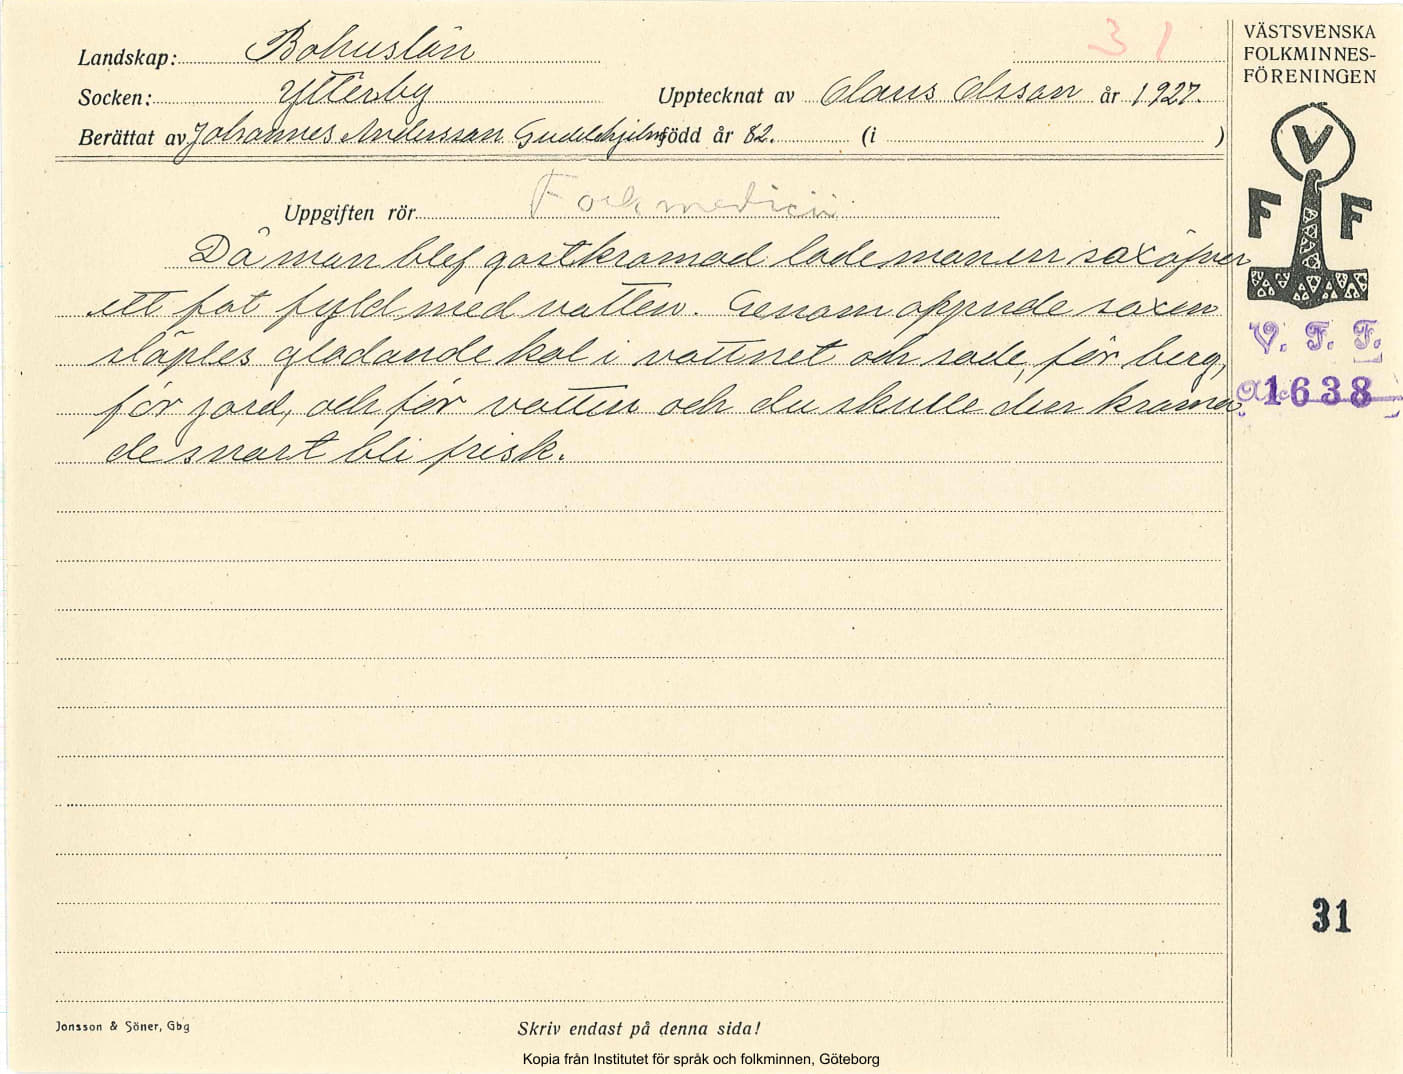 31
VÄSTSVENSKA
FOLKMINNES-
FÖRENINGEN
Landskap: Bohuslän
Socken: Ytterby
Upptecknat av Claus Olsson år 1927.
Berättat av Johannes Andersson Guddehjelm född år 82. (i )
V
F F
Uppgiften rör Folkmedicin
Då man blef gastkramad lade man en sax öfver
ett fat fyld med vatten. Genom öppnde saxen
släples glödande kol i vattnet och sade, för berg,
för jord, och för vatten och du skulle den krama
de snart bli frisk.
V. F. F.
1638
31
Jonsson & Söner, Gbg
Skriv endast på denna sida!
Kopia från Institutet för språk och folkminnen, Göteborg